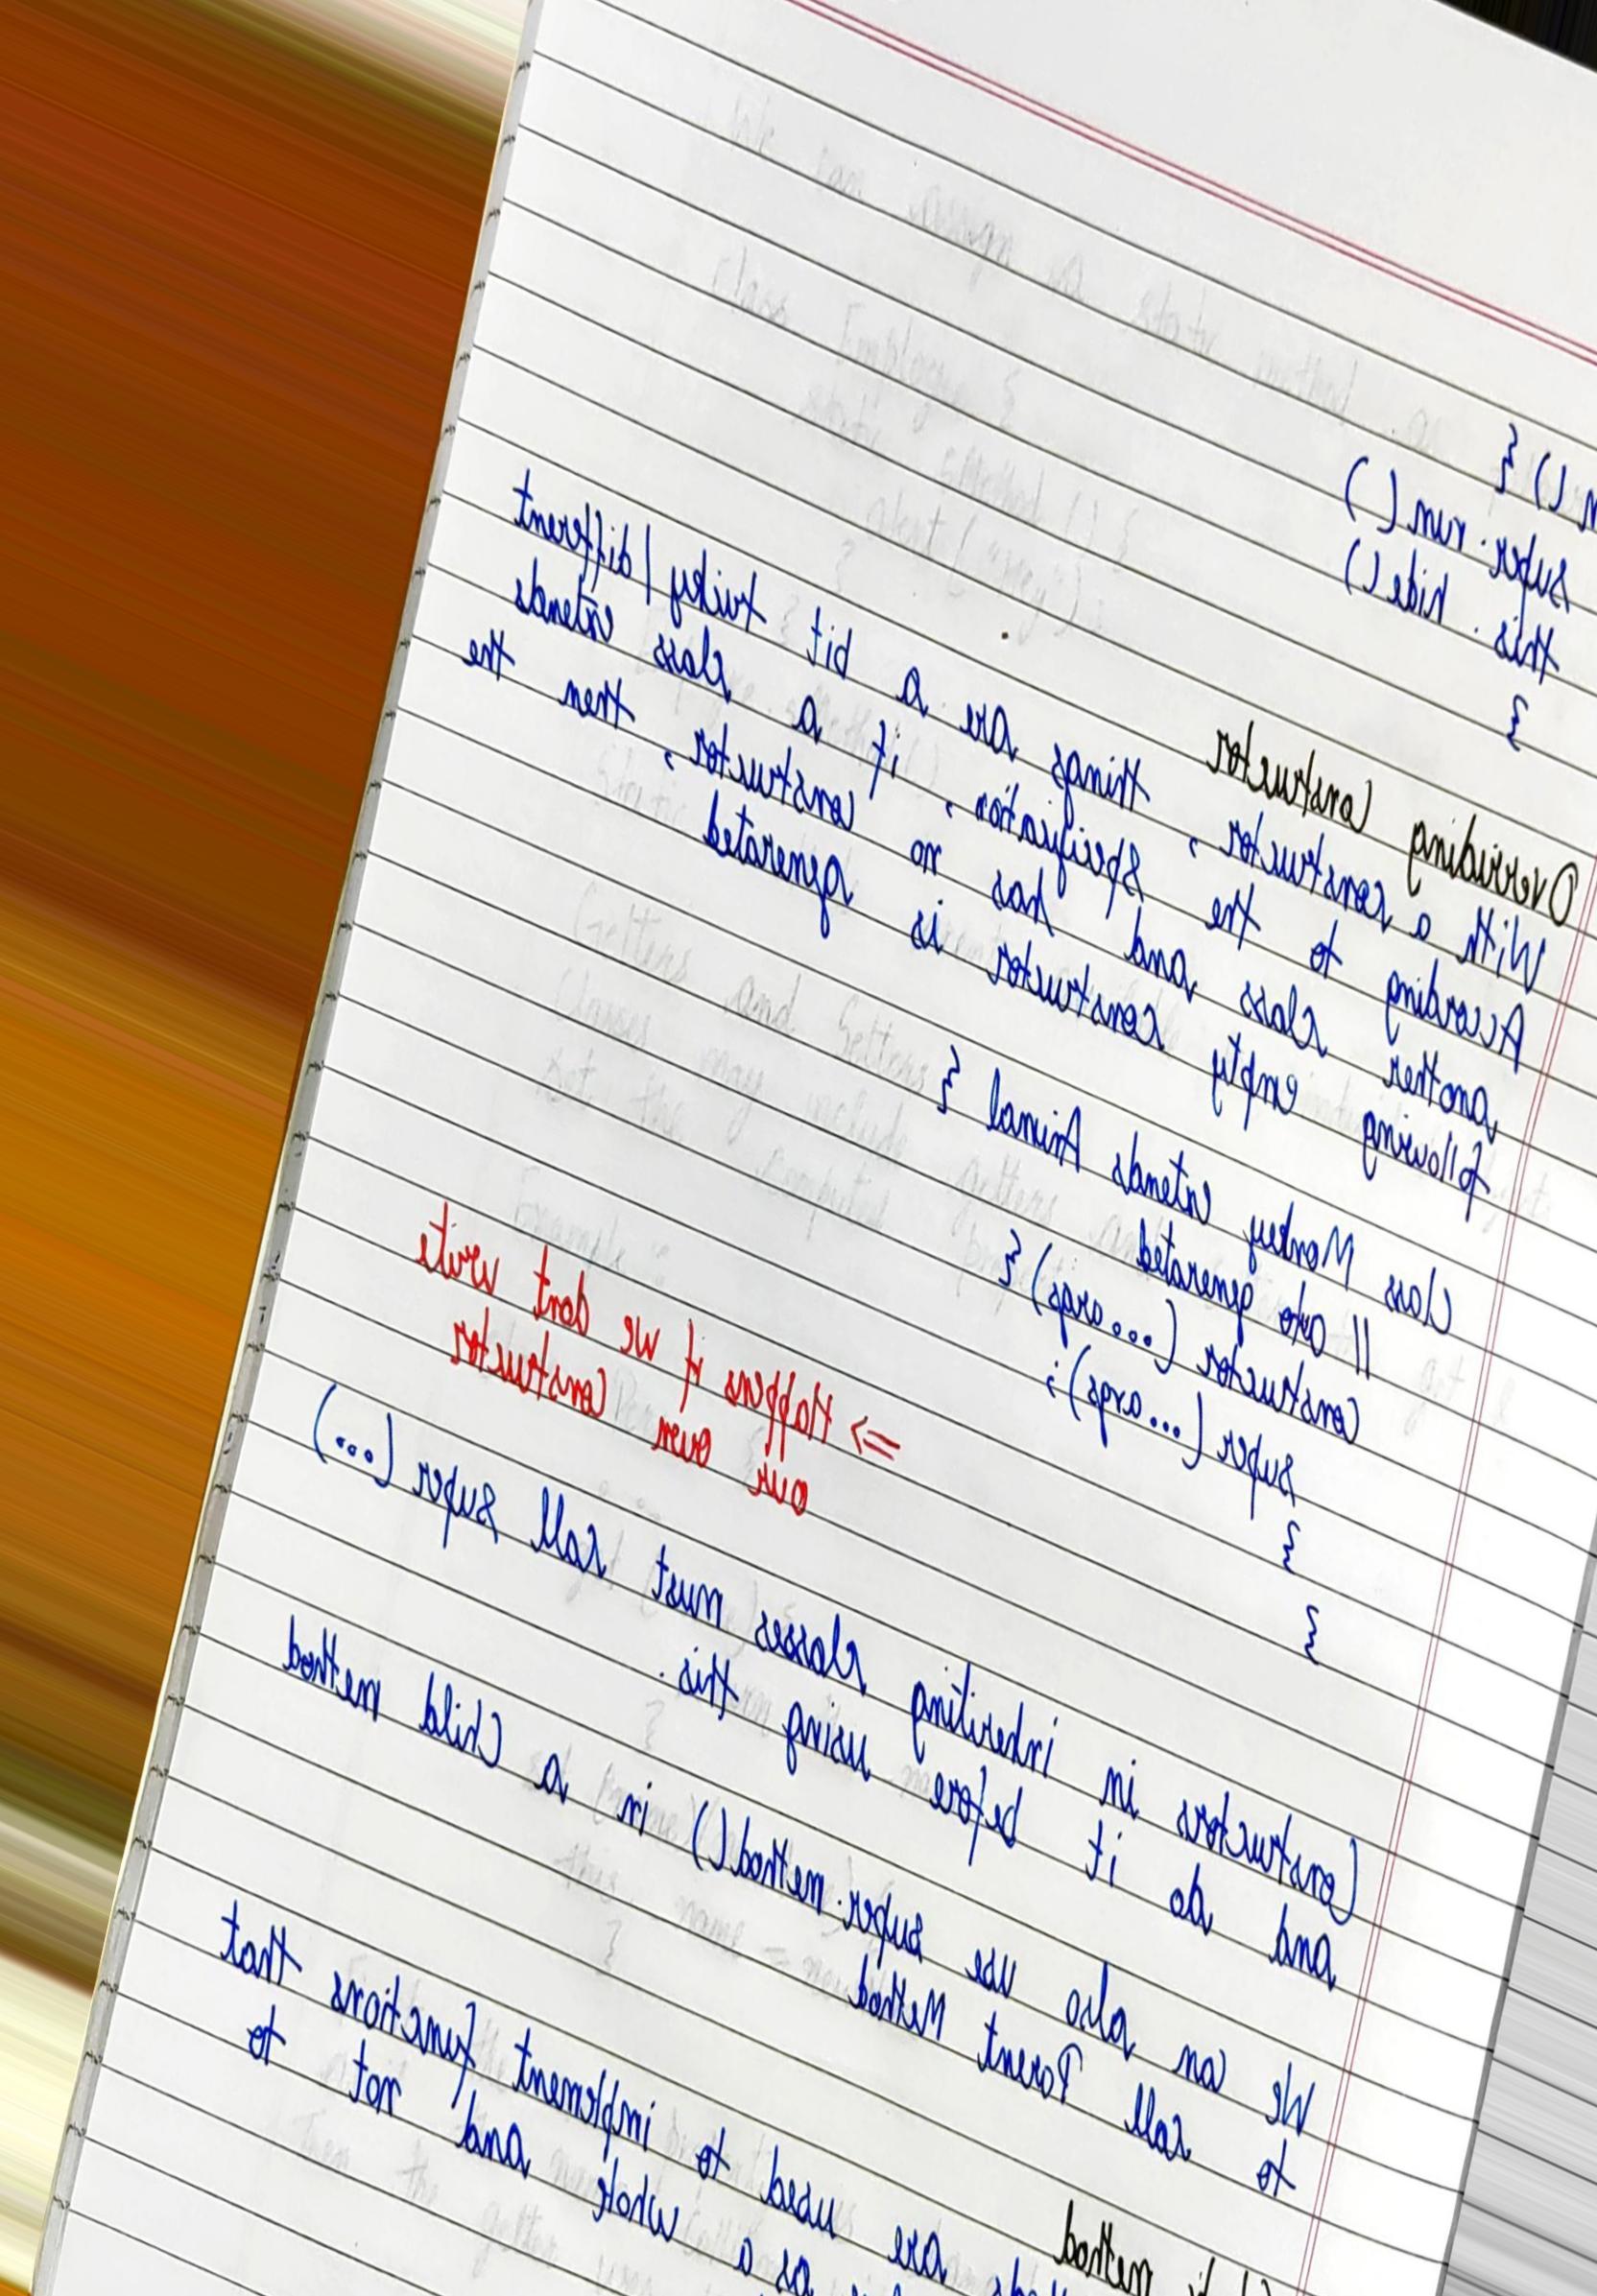 () {
super.run()
this.hide()
}
Overriding Constructor
With a constructor, things are a bit tricky/different
According to the specification, if a class extends
another class and has no constructor, then the
following empty constructor is generated
Class Monkey extends Animal {
// auto generated
Constructor (...args) {
super (...args);
}
}
=> Happens if we dont write
our own Constructor
Constructors in inheriting classes must call super (...)
and do it before using this.
We can also use super.method() in a Child method
to call Parent Method
method
are used to implement functions that
as a whole and not to